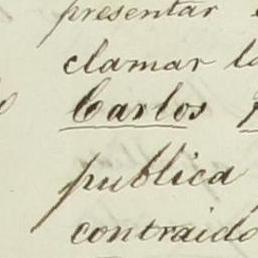 presentar
clamar
Carlos
publica
contraido